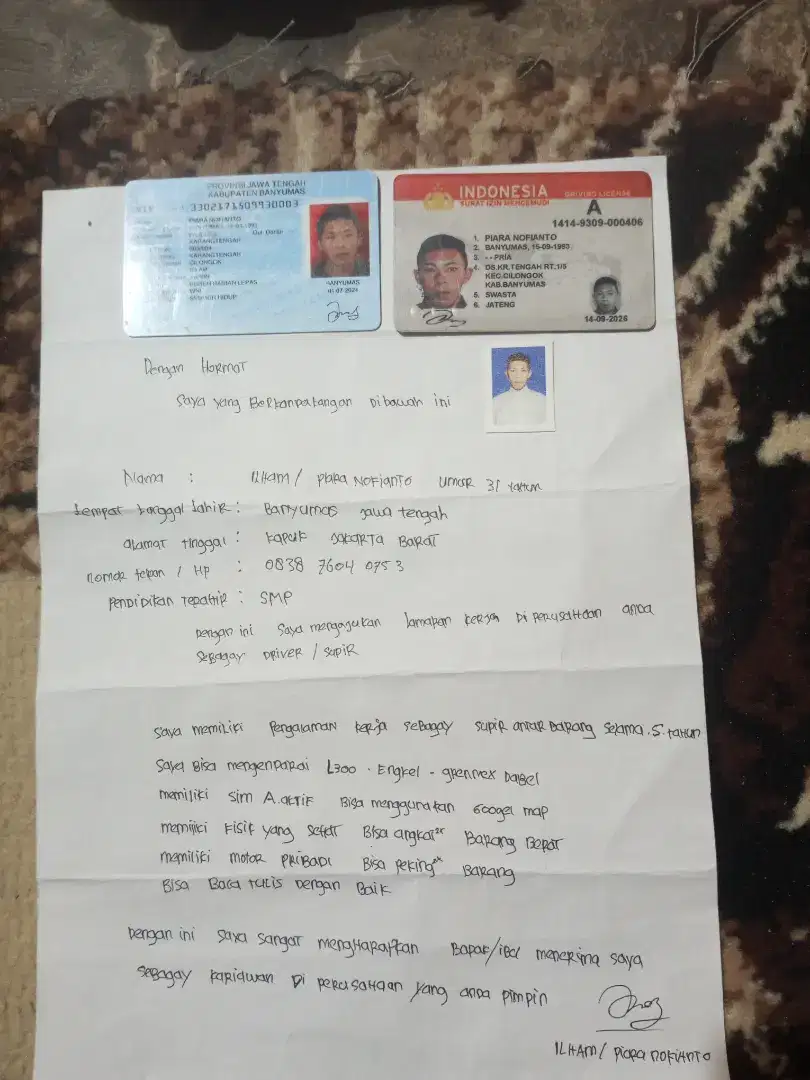 PROVINSI JAWA TENGAH
KABUPATEN BANYUMAS
NIK
3302171509930003
PIARA NOFIANTO
KARANGTENGAH
KARANGTENGAH
CILONGOK
ISLAM
BURUH HARIAN LEPAS
WNI
SEUMUR HIDUP
BANYUMAS
INDONESIA
SURAT IZIN MENGEMUDI
DRIVING LICENSE
A
1414-9309-000406
1. PIARA NOFIANTO
2. BANYUMAS, 15-09-1993
3. - - PRIA
4. DS.KR.TENGAH RT.1/5
KEC.CILONGOK
KAB.BANYUMAS
5. SWASTA
6. JATENG
14-09-2026
Dengan Hormat
Saya yang Bertanpatangan Dibawah ini
Nama : ILHAM / piara NOFIANTO umur 31 tahun
tempat tanggal lahir : Banyumas jawa tengah
alamat tinggal : kapuk JAKARTA BARAT
nomor tepon / HP : 0838 7604 0753
Pendidikan tepathir : SMP
Dengan ini saya mengajukan lamaran kerja Di perusahaan anda
sebagay DRIVER / supir
saya memiliki Pengalaman kerja sebagay supir antar barang selama .5. tahun
Saya Bisa mengenparai L300 . Engkel - grennex Dabel
memiliki sim A.aktif Bisa menggunakan Googel map
memiliki Fisik yang sehat Bisa angkat²x Barang Berat
memiliki motor PRIBADI Bisa peking²x Barang
Bisa Baca tulis dengan Baik
Dengan ini saya sangat mengharapkan Bapak/ibu menerima saya
sebagay kariawan Di perusahaan yang anda pimpin
ILHAM / piara nofianto